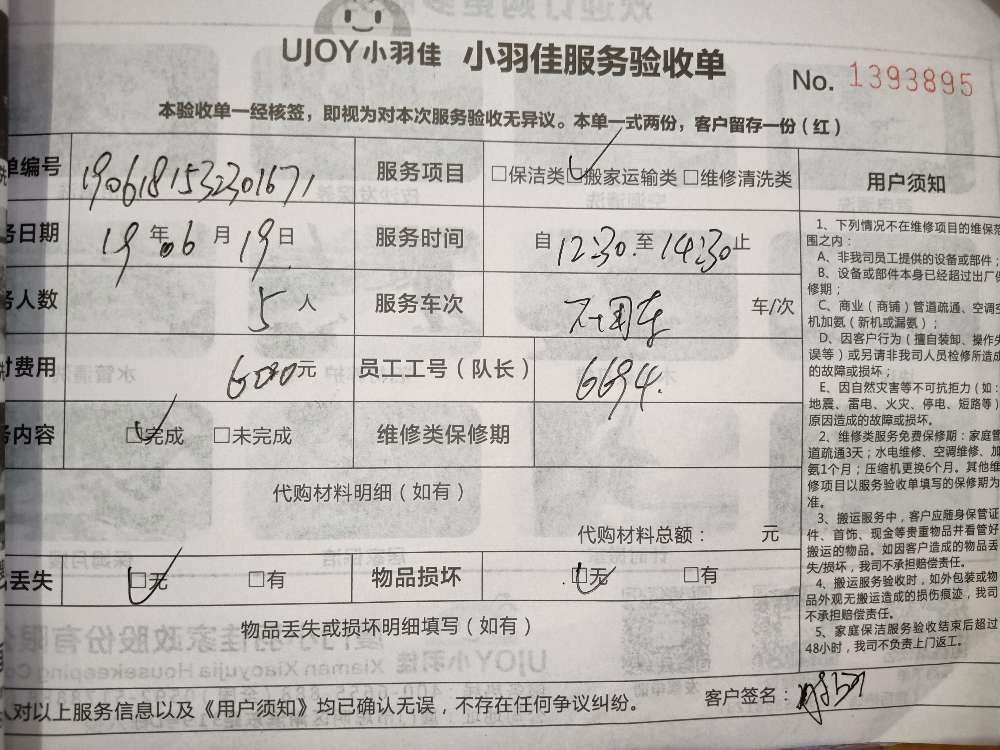 UJOY小羽佳 小羽佳服务验收单
No. 1393895
本验收单一经核签，即视为对本次服务验收无异议。本单一式两份，客户留存一份（红）
单编号 1906181532301671 服务项目 □保洁类 □搬家运输类 □维修清洗类
务日期 19年06月19日 服务时间 自12:30至14:30止
务人数 5人 服务车次 不用车 车/次
付费用 600元 员工工号（队长） 6694
务内容 □完成 □未完成 维修类保修期
代购材料明细（如有）
代购材料总额： 元
丢失 □无 □有 物品损坏 □无 □有
物品丢失或损坏明细填写（如有）
人对以上服务信息以及《用户须知》均已确认无误，不存在任何争议纠纷。
客户签名：
用户须知
1、下列情况不在维修项目的维保范
围之内：
A、非我司员工提供的设备或部件；
B、设备或部件本身已经超过出厂保
修期；
C、商业（商铺）管道疏通、空调空
机加氨（新机或漏氨）；
D、因客户行为（擅自装卸、操作失
误等）或另请非我司人员检修所造成
的故障或损坏；
E、因自然灾害等不可抗拒力（如：
地震、雷电、火灾、停电、短路等）
原因造成的故障或损坏。
2、维修类服务免费保修期：家庭管
道疏通3天；水电维修、空调维修、加
氨1个月；压缩机更换6个月。其他维
修项目以服务验收单填写的保修期为
准。
3、搬运服务中，客户应随身保管证
件、首饰、现金等贵重物品并看管好
搬运的物品。如因客户造成的物品丢
失/损坏，我司不承担赔偿责任。
4、搬运服务验收时，如外包装或物
品外观无搬运造成的损伤痕迹，我司
不承担赔偿责任。
5、家庭保洁服务验收结束后超过
48小时，我司不负责上门返工。